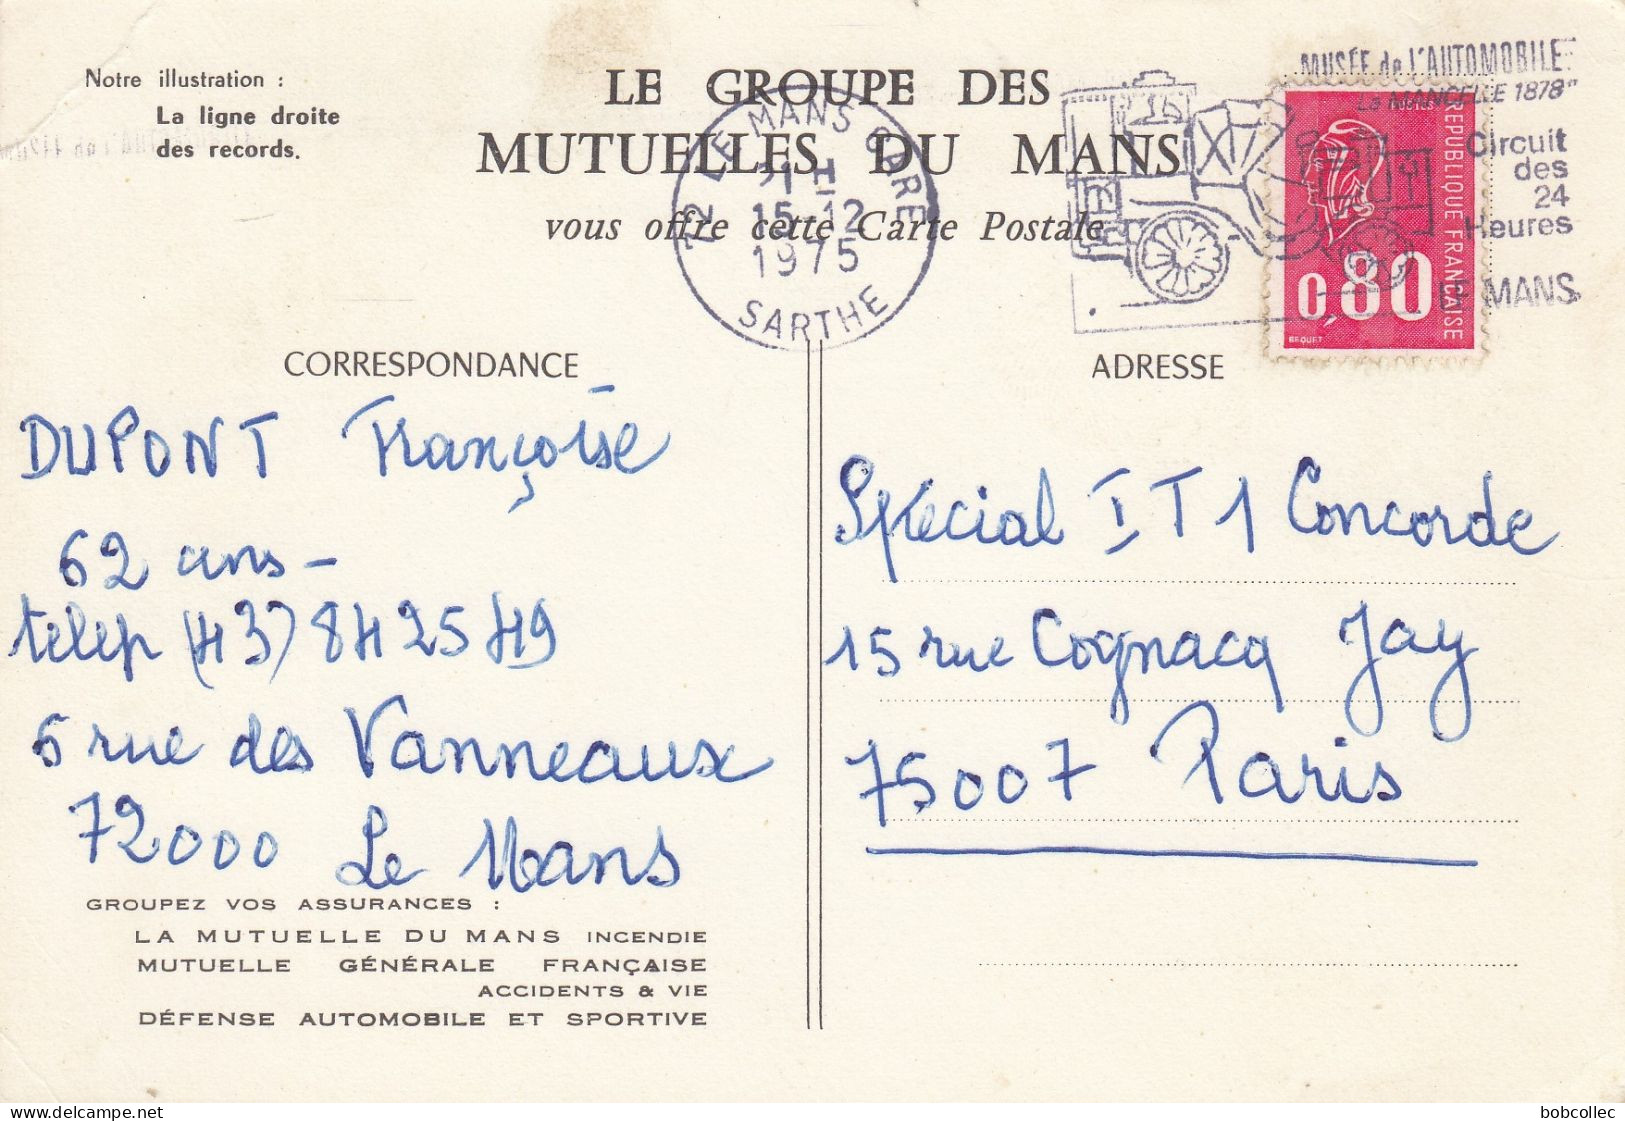 Notre illustration :
La ligne droite
des records.
LE GROUPE DES
MUTUELLES DU MANS
vous offre cette Carte Postale
72 LE MANS GARE
21 H
15-12
1975
SARTHE
MUSÉE de L'AUTOMOBILE
"La MANCELLE 1878"
Circuit
des
24
Heures
LE MANS
REPUBLIQUE FRANCAISE
0,80
BEQUET
CORRESPONDANCE
DUPONT Françoise
62 ans -
telep (43) 84 25 49
6 rue des Vanneaux
72000 Le Mans
GROUPEZ VOS ASSURANCES :
LA MUTUELLE DU MANS INCENDIE
MUTUELLE GÉNÉRALE FRANÇAISE
ACCIDENTS & VIE
DÉFENSE AUTOMOBILE ET SPORTIVE
ADRESSE
Spécial IT1 Concorde
15 rue Cognacq Jay
75007 Paris
bobcollec